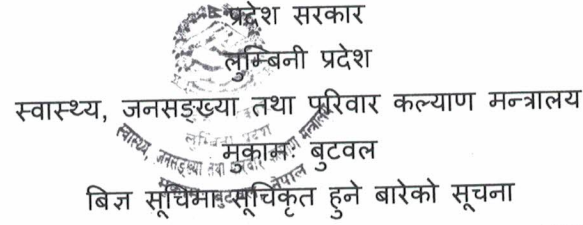 प्रदेश सरकार
लुम्बिनी प्रदेश
स्वास्थ्य, जनसङ्ख्या तथा परिवार कल्याण मन्त्रालय
मुकामः बुटवल
बिज्ञ सूचिमा सूचिकृत हुने बारेको सूचना